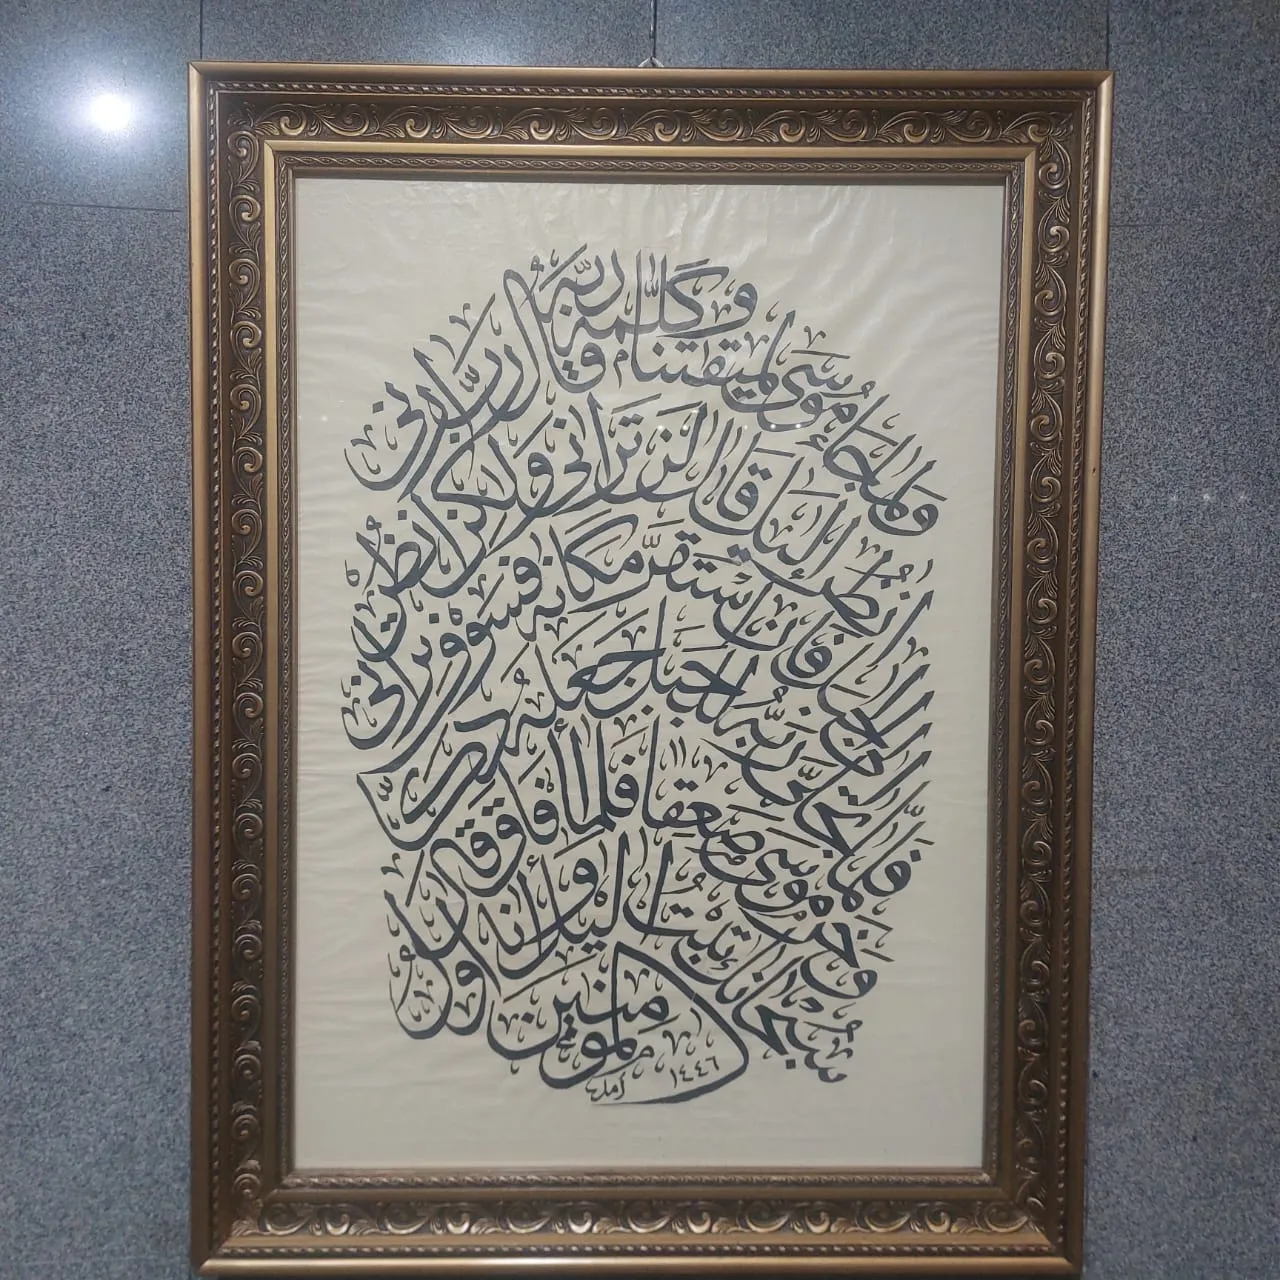 ولما جاء موسى لميقتنا وكلمه ربه قال رب أرني
أنظر إليك قال لن تراني ولكن انظر
إلى الجبل فإن استقر مكانه فسوف تراني
فلما تجلى ربه للجبل جعله دكا
وخر موسى صعقا فلما أفاق قال
سبحانك تبت إليك وأنا أول
المؤمنين
١٤٤٦